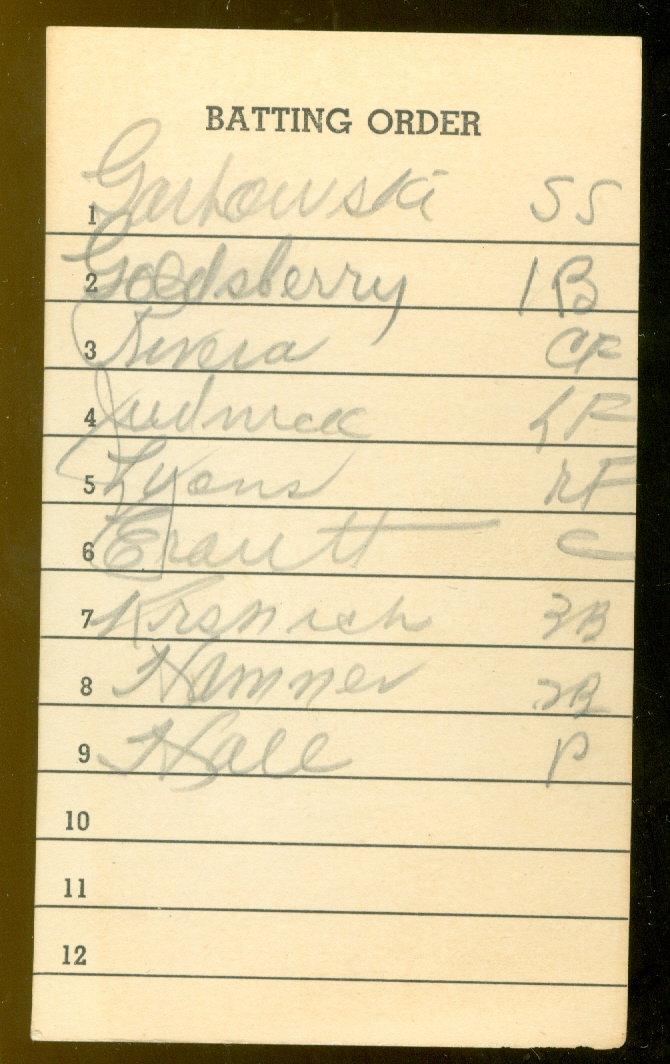 BATTING ORDER
1 Garbowski SS
2 Goldsberry 1B
3 Rivera CF
4 Judnick LF
5 Lyons RF
6 Erautt C
7 Krsnich 3B
8 Hamner 2B
9 Hall P
10
11
12